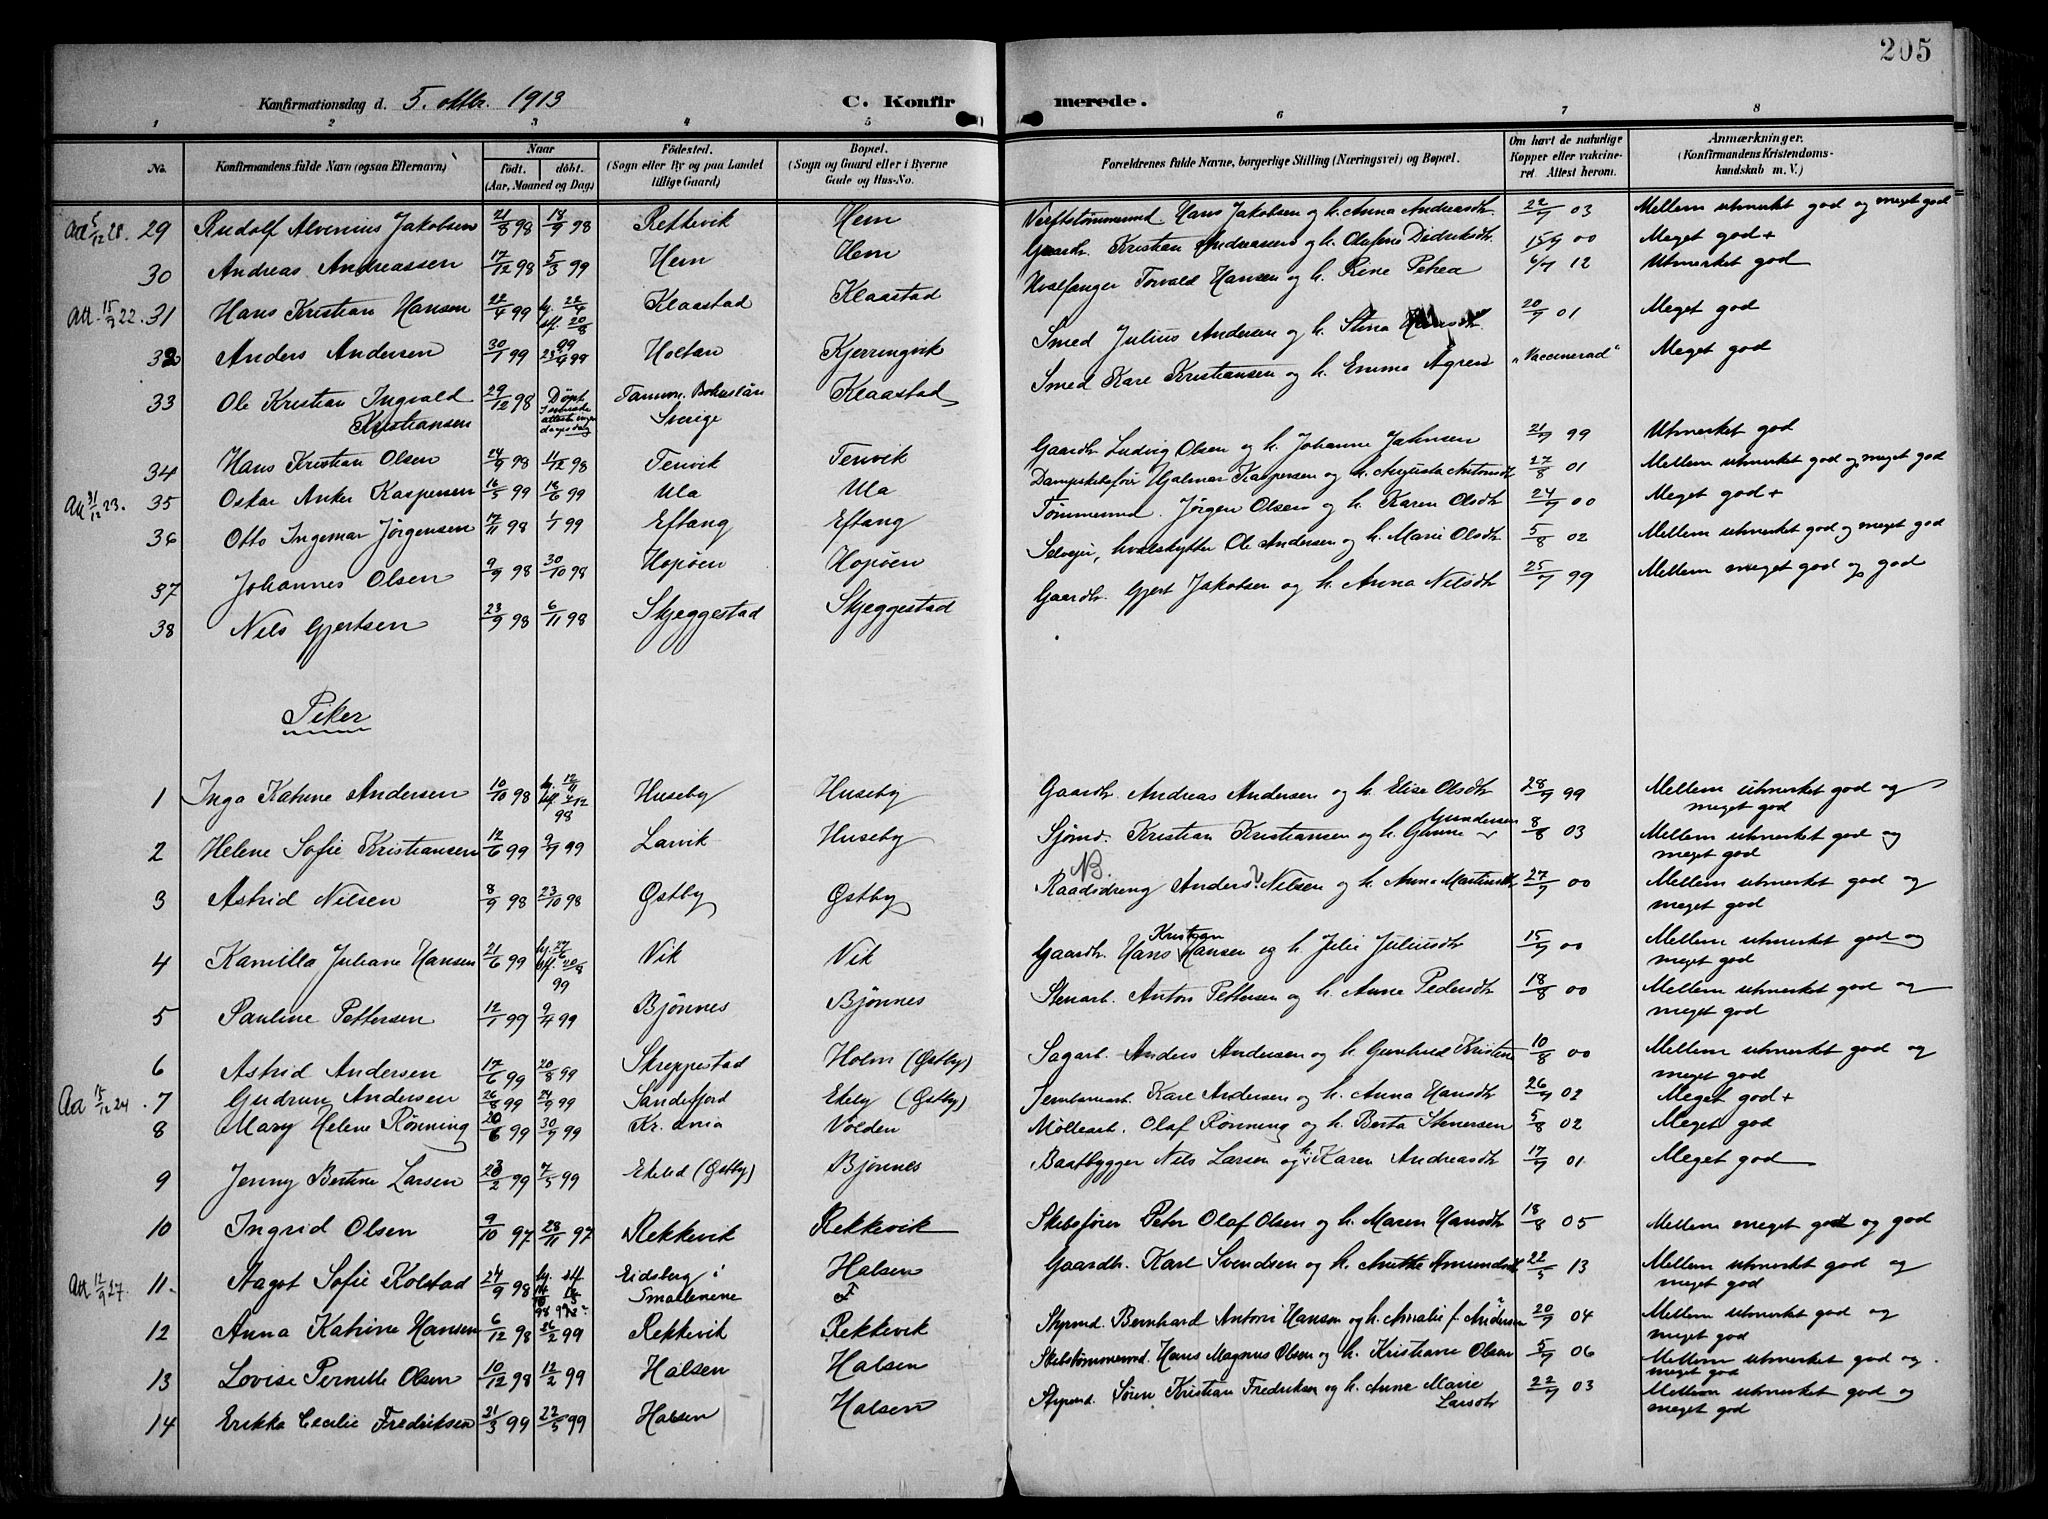 205
Konfirmationsdag d. 5. oktbr. 1913 C. Konfirmerede.
1 2 3 4 5 6 7 8
No. Konfirmandens fulde Navn (ogsaa Efternavn) Naar født. døbt. (Aar, Maaned og Dag) Fødested. (Sogn eller By og paa Landet tillige Gaard) Bopæl. (Sogn og Gaard eller i Byerne Gade og Hus-No. Forældrenes fulde Navne, borgerlige Stilling (Næringsvei) og Bopæl. Om havt de naturlige Kopper eller vakcineret. Attest herom. Anmærkninger. (Konfirmandens Kristendomskundskab m. V.)
Att 5/12 28. 29 Rudolf Alvenius Jakobsen 21/8 98 18/9 98 Rekkevik Hem Verftstømmermd. Hans Jakobsen og h. Anna Andreasdtr. 22/9 03 Mellem utmerket god og meget god
30 Andreas Andreassen 17/12 98 5/3 99 Hem Hem Gaardbr. Kristian Andreassen og h. Olafine Didriksdtr. 15/9 00 Meget god+
Att. 15/9 22. 31 Hans Kristian Hansen 22/4 99 hj. 22/4 stf. 20/8 99 Klaastad Klaastad Hvalfanger Torvald Hansen og h. Rene Petrea 6/7 12 Utmerket god
32 Anders Andersen 30/1 99 23/4 99 Holtan Kjerringvik Smed Julius Andersen og h. Stina 20/9 01 Meget god
33 Ole Kristian Ingvald Kristiansen 29/12 98 Døpt Tanum. Bohuslän Sverige Klaastad Smed Kare Kristiansen og h. Emma Ågren "Vaccinerad" Meget god
34 Hans Kristian Olsen 24/9 98 11/12 98 Tenvik Tenvik Gaardbr. Ludvig Olsen og h. Johanne Jahnsen 21/9 99 Utmerket god
Att 31/12 23. 35 Oskar Anker Kaspersen 16/5 99 18/6 99 Ula Ula Dampskibsfører Hjalmar Kaspersen og h. Augusta Antonsdtr 27/8 01 Mellem utmerket god og meget god
36 Otto Ingemar Jørgensen 17/11 98 1/1 99 Eftang Eftang Tømmermd. Jørgen Olsen og h. Karen Olsdtr 24/9 00 Meget god+
37 Johannes Olsen 9/9 98 30/10 98 Hopøen Hopøen Selveier, hvalskytter Ole Andersen og h. Marie Olsdtr 5/8 02 Mellem utmerket god og meget god
38 Nils Gjertsen 23/9 98 6/11 98 Skjeggestad Skjeggestad Gaardbr. Gjert Jakobsen og h. Anna Nilsdtr 25/9 99 Mellem meget god og god
Piker
1 Inga Katrine Andersen 10/10 98 hj. 12/11 stf. 4/12 98 Huseby Huseby Gaardbr. Andreas Andersen og h. Elise Olsdtr 28/9 99 Mellem utmerket god og meget god
2 Helene Sofie Kristiansen 12/6 99 9/7 99 Larvik Huseby Sjømd. Kristian Kristiansen og h. Gunne Gundersen 8/8 03 Mellem utmerket god og meget god
3 Astrid Nilsen 8/9 98 23/10 98 Østby Østby NB. Raadsdreng Anders Nilsen og h. Anna Martinsdtr 27/9 00 Mellem utmerket god og meget god
4 Kamilla Juliane Hansen 21/6 99 hj. 27/6 stf. 20/8 99 Vik Vik Gaardbr. Hans Kristian Hansen og h. Julie Juliusdtr 15/9 00 Mellem utmerket god og meget god
5 Pauline Pettersen 12/1 99 9/4 99 Bjønnes Bjønnes Stenarb. Anton Pettersen og h. Anne Pedersdtr 18/8 00 Mellem utmerket god og meget god
6 Astrid Andersen 17/6 99 20/8 99 Skreppestad Holm (Østby) Sagarb. Anders Andersen og h. Gunhild Kristine 10/8 00 Mellem utmerket god og meget god
Att 15/12 24. 7 Gudrun Andersen 26/8 99 24/9 99 Sandefjord Ekeby (Østby) Jernbanearb. Kare Andersen og h. Anna Hansdtr 26/9 02 Meget god+
8 Mary Helene Rønning 20/6 99 30/7 99 Kr.ania Volden Møllearb. Olaf Rønning og h. Berta Stenersen 5/8 02 Meget god
9 Jenny Bertine Larsen 23/2 99 7/5 99 Ekelid (Østby) Bjønnes Baatbygger Nils Larsen og h. Karen Andreasdtr 17/9 01 Meget god
10 Ingrid Olsen 9/10 97 28/11 97 Rekkevik Rekkevik Skibsfører Peter Olaf Olsen og h. Maren Hansdtr 18/8 05 Mellem meget godt og god
Att 12/9 27. 11. Aagot Sofie Kolstad 24/9 98 hj. stf. Eidsberg i Smaalenene Halsen Gaardbr. Karl Svendsen og h. Anthe Amundsdtr 22/5 13 Mellem utmerket god og meget god
12 Anna Katrine Hansen 6/12 98 26/2 99 Rekkevik Rekkevik Styrmd. Bernhard Anton Hansen og h. Amalie f. Andersen 20/9 04 Mellem utmerket god og meget god
13 Lovise Pernille Olsen 10/12 98 12/2 99 Halsen Halsen Skibstømmermd. Hans Magnus Olsen og h. Kristiane Olsen 5/9 06 Mellem utmerket god og meget god
14 Erikka Cecilie Fredriksen 21/3 99 22/5 99 Halsen Halsen Styrmd. Søren Kristian Fredriksen og h. Anne Marie Larsdtr 22/9 03 Mellem utmerket god og meget god